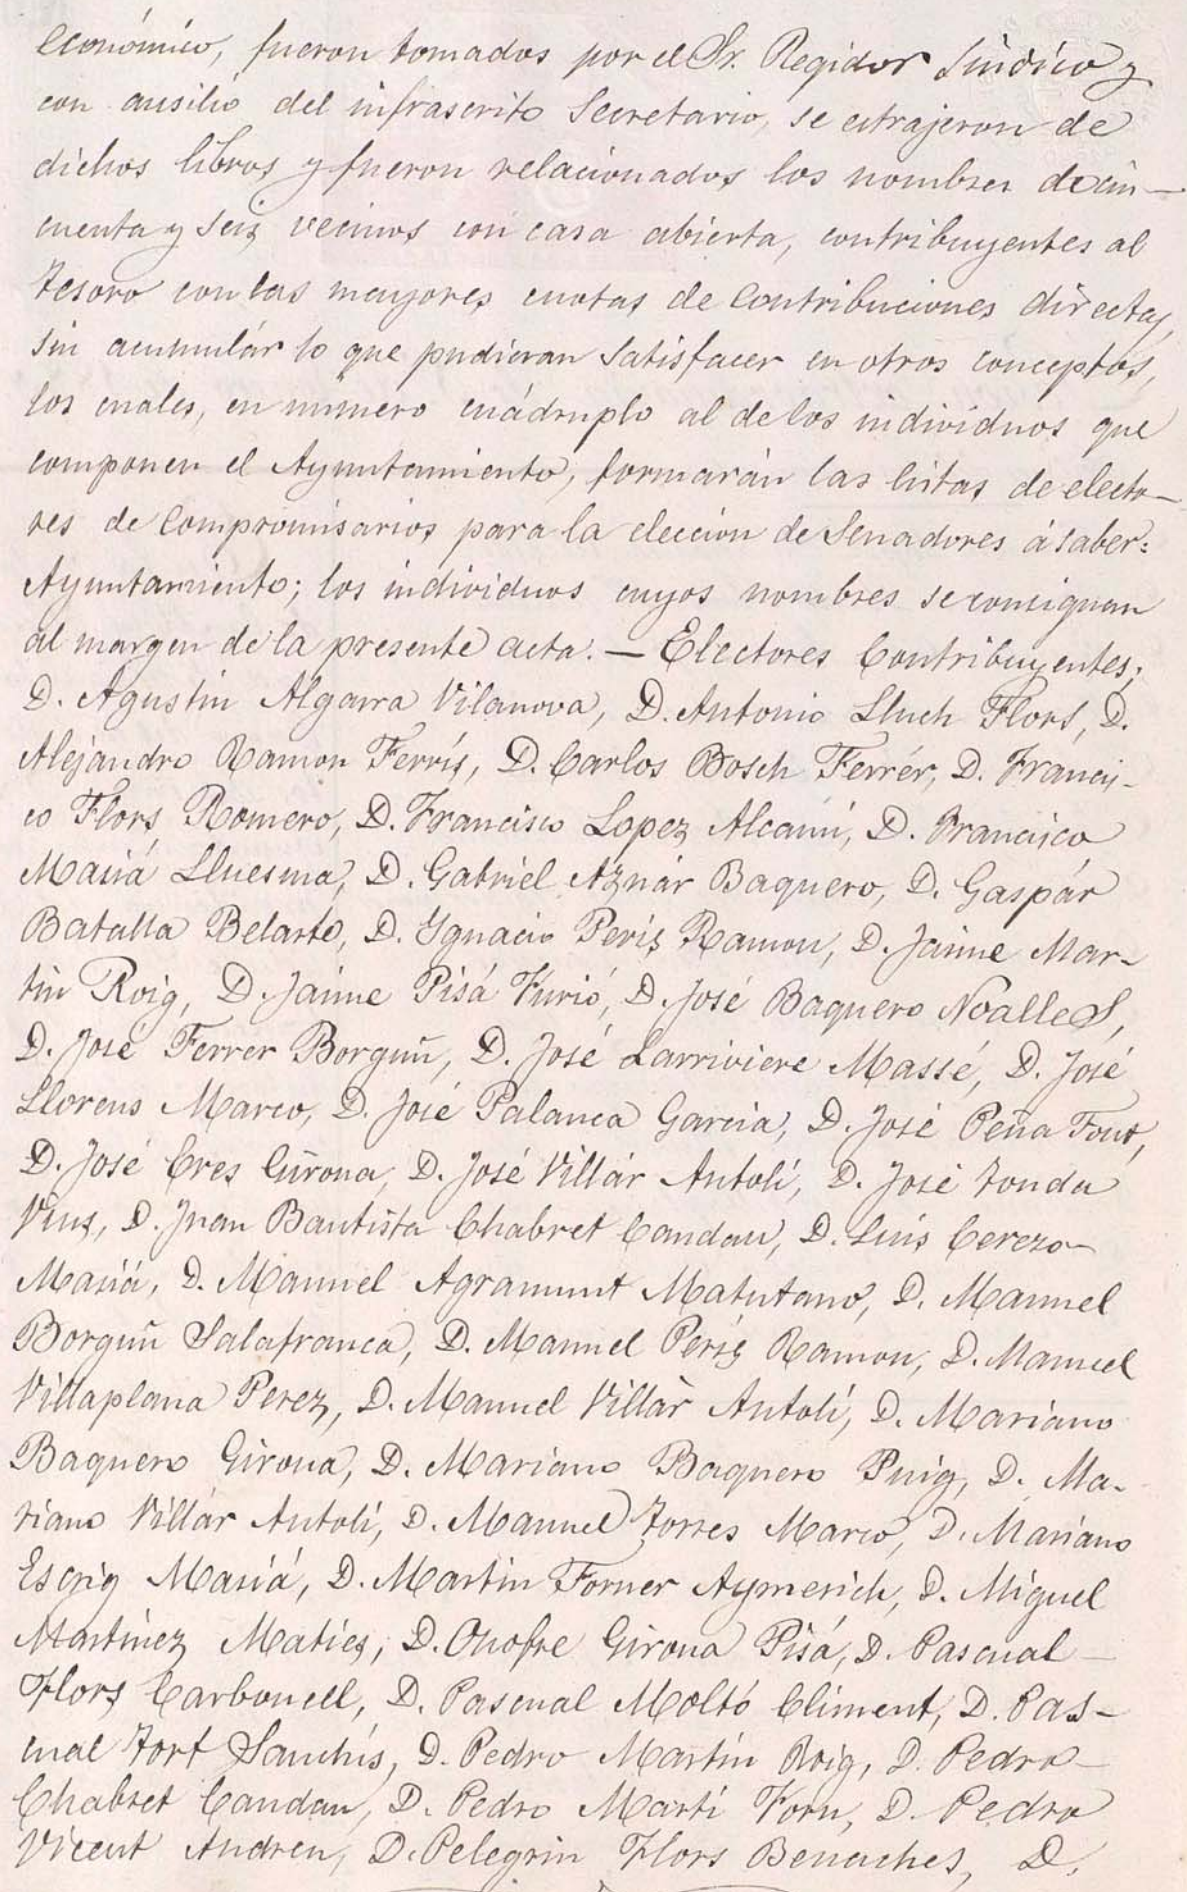 económico, fueron tomados por el Sr. Regidor Síndico y
con ausilio del infrascrito Secretario, se estrajeron de
dichos libros y fueron relacionados los nombres de cin-
cuenta y seis vecinos con casa abierta, contribuyentes al
Tesoro con las mayores cuotas de Contribuciones directas,
sin acumulár lo que pudieran satisfacer en otros conceptos,
los cuales, en número cuádruplo al de los individuos que
componen el Ayuntamiento, formarán las listas de electo-
res de Compromisarios para la elección de Senadores á saber:
Ayuntamiento; los individuos cuyos nombres se consignan
al margen de la presente acta. — Electores Contribuyentes;
D. Agustin Algarra Vilanova, D. Antonio Lluch Flors, D.
Alejandro Ramon Ferrís, D. Carlos Bosch Ferrér, D. Francis-
co Flors Romero, D. Francisco Lopez Alcañí, D. Francisco
Masiá Lluesma, D. Gabriel Aznár Baquero, D. Gaspár
Batalla Belarte, D. Ygnacio Peris Ramon, D. Jaime Mar-
tin Roig, D. Jaime Pisá Furió, D. José Baquero Noalles,
D. José Ferrer Borguñ, D. José Larriviere Massé, D. José
Llorens Marco, D. José Palanca Garcia, D. José Peña Font,
D. José Cres Girona, D. José Villár Antolí, D. José
D. Juan Bautista Chabret Candau, D. Luis Cerezo
Masiá, D. Manuel Agramunt Matutano, D. Manuel
Borguñ Salafranca, D. Manuel Peris Ramon, D. Manuel
Villaplana Perez, D. Manuel Villár Antolí, D. Mariano
Baquero Girona, D. Mariano Baquero Puig, D. Ma-
riano Villár Antolí, D. Manuel Torres Marco, D. Mariano
Escrig Masiá, D. Martin Forner Aymerich, D. Miguel
Martinez Maties, D. Onofre Girona Pisá, D. Pascual
Flors Carbonell, D. Pascual Moltó Climent, D. Pas-
cual Fort Sanchís, D. Pedro Martin Roig, D. Pedro
Chabret Candau, D. Pedro Martí Forn, D. Pedro
Vicent Andreu, D. Pelegrin Flors Benaches, D.